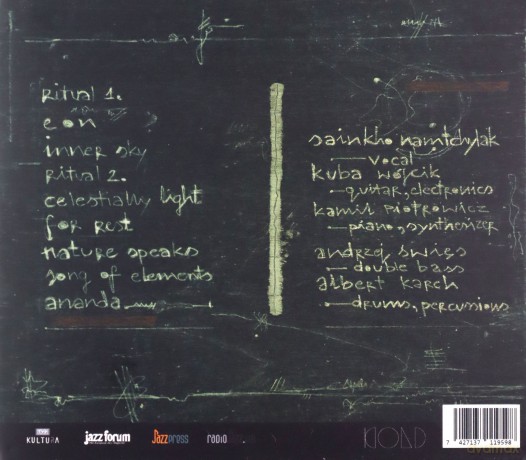 ritual 1.
eon
inner sky
ritual 2.
celestially light
for rest
nature speaks
song of elements
ananda
sainkho namtchylak
vocal
kuba wójcik
guitar, electronics
kamil piotrowicz
piano, synthesizer
andrzej święs
double bass
albert karch
drums, percussions
KULTURA
jazz forum
Jazzpress
radio
7 427137 119598